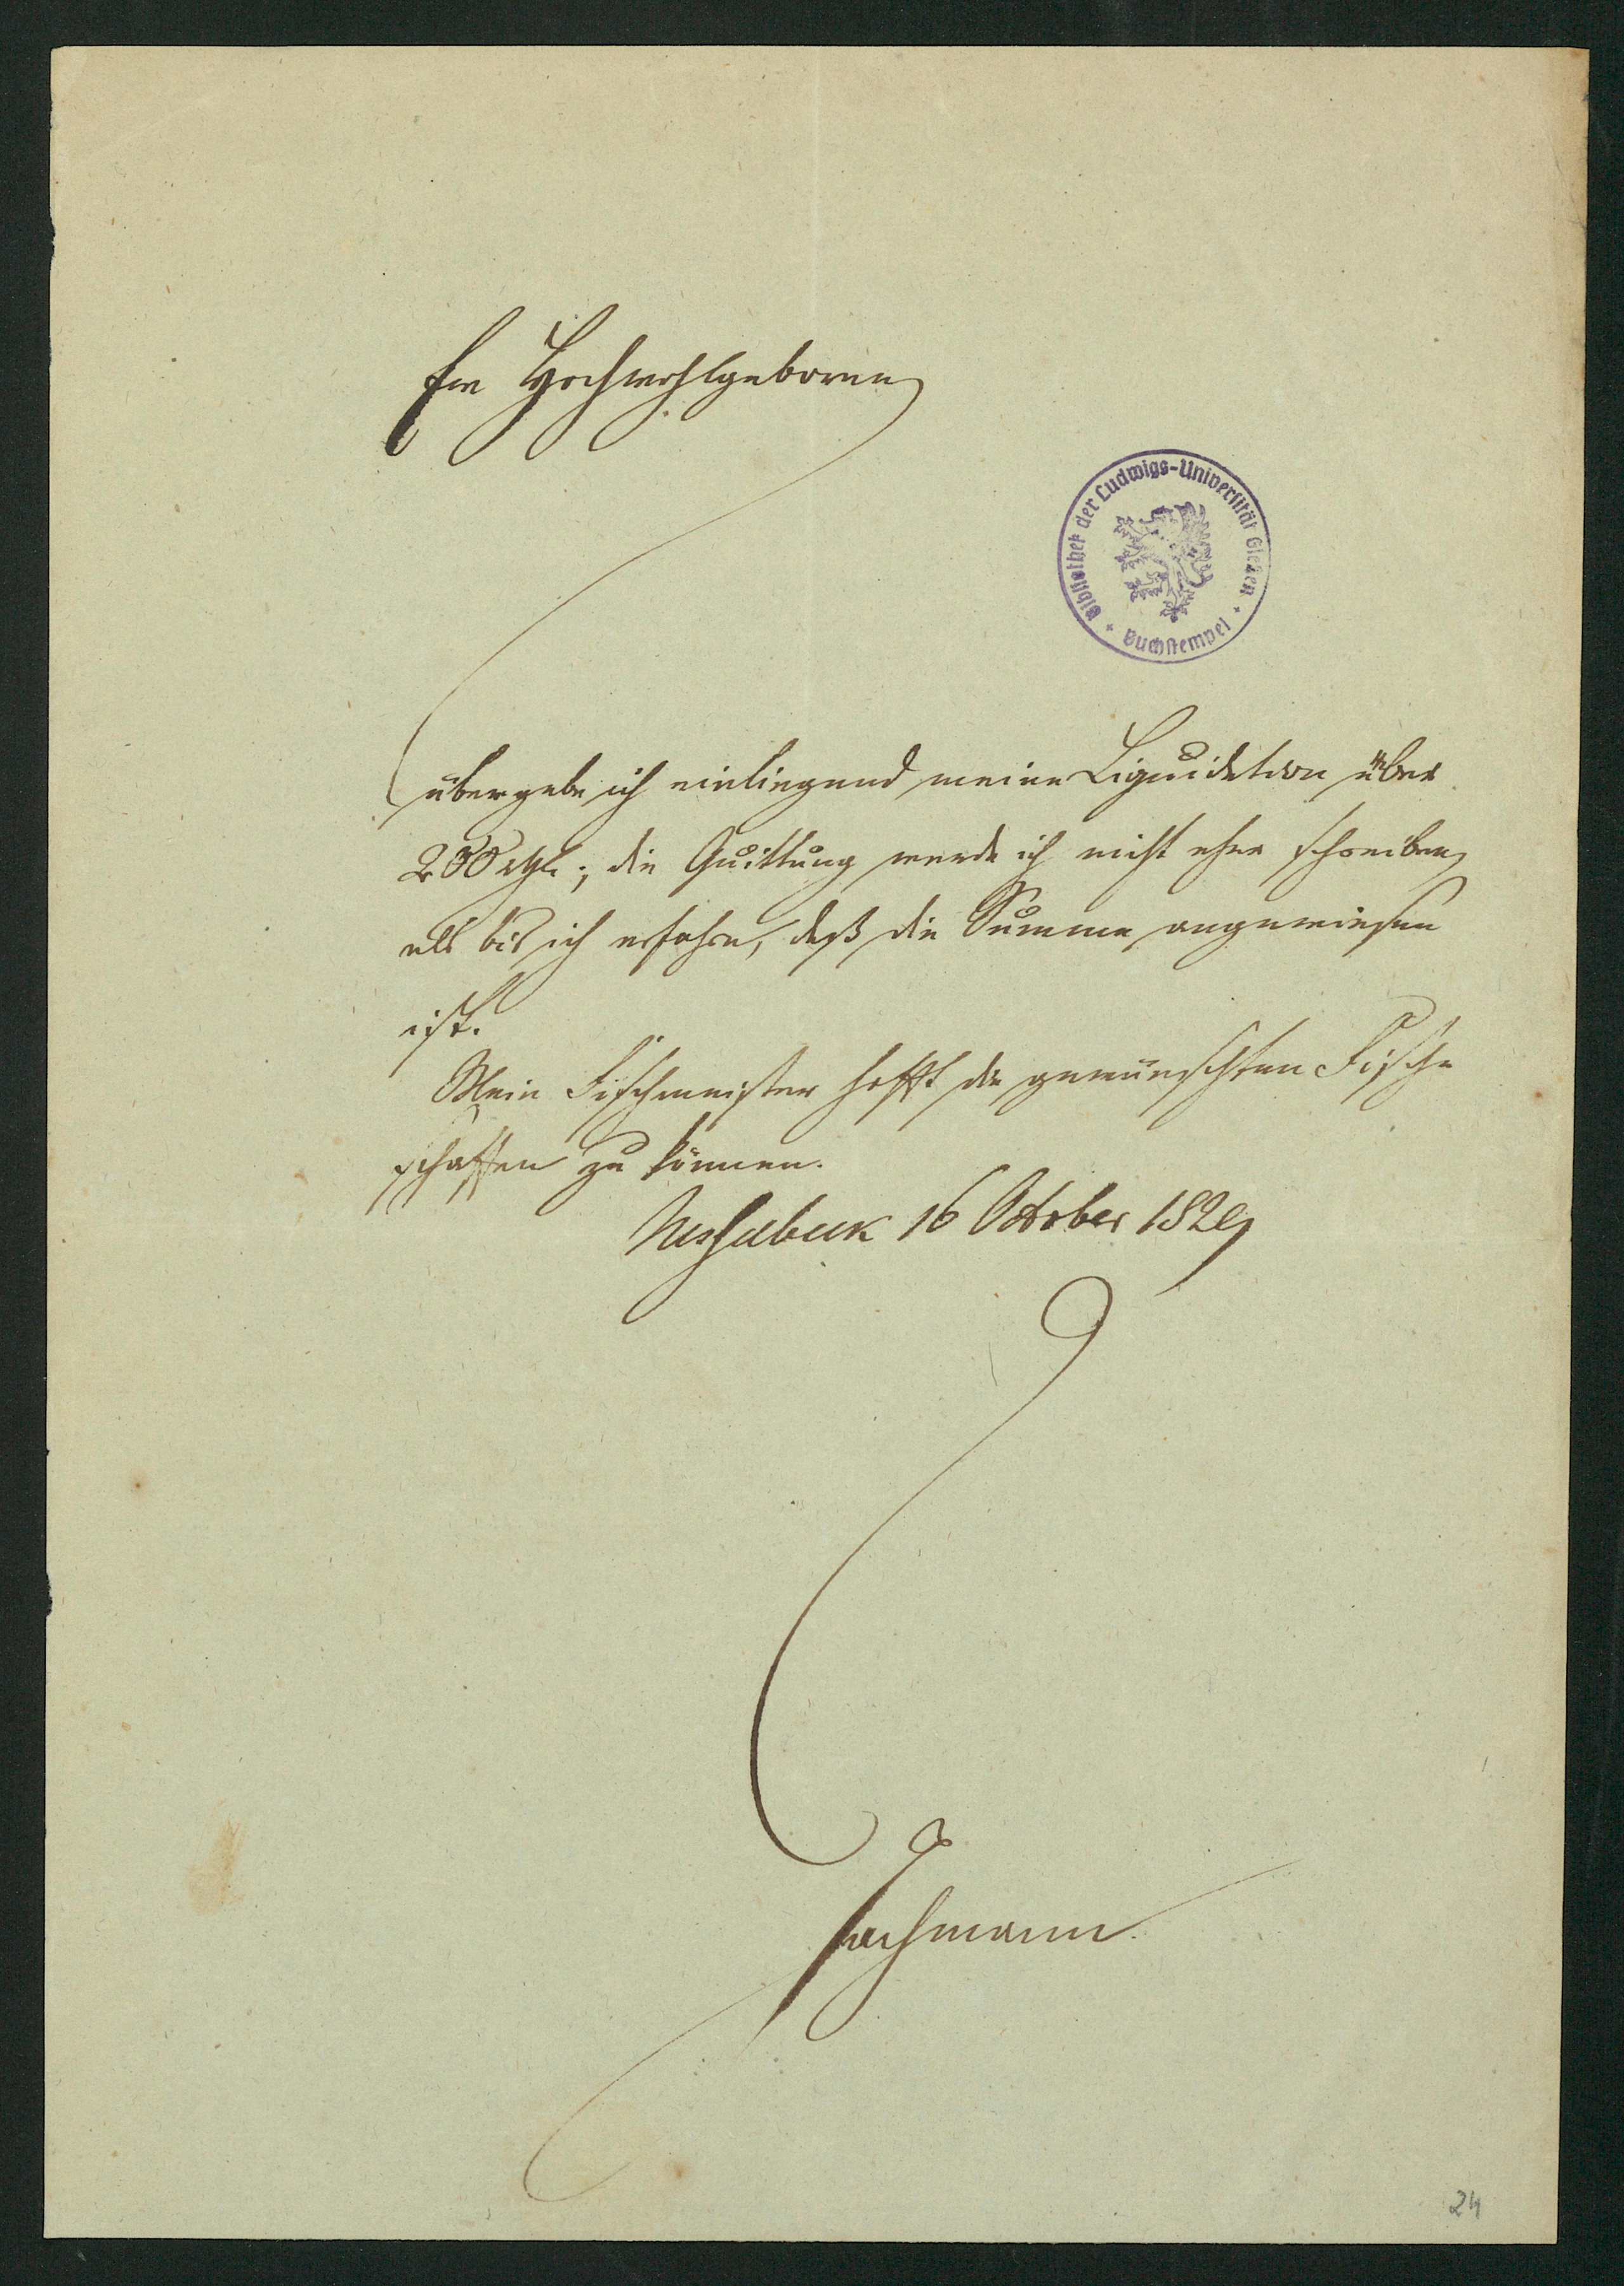 Ew Hochwohlgeboren
Bibliothek der Ludwigs-Universität Gießen
Buchstempel
übergebe ich einliegend meine Liquidation über
200 rthl.; die Quittung werde ich nicht eher schreiben
als bis ich erfahre, daß die Summe angewiesen
ist.
Mein Fischmeister hofft die gewünschten Fische
schaffen zu können.
16 October 1829
Jachmann
24